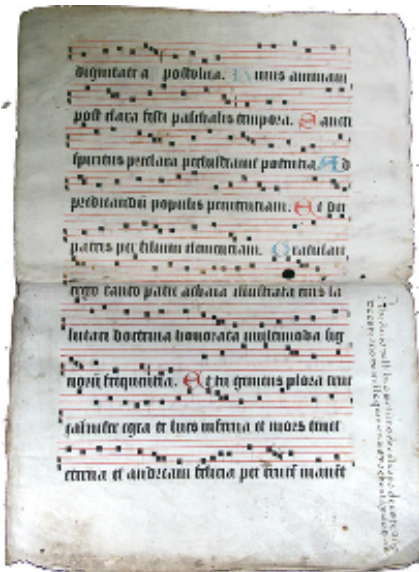 dignitate a postolica. Huius animam
post clara festi paschalis tempora. Sancti
spiritus preclara perlustravit potentia. Ad
predicandū populis penitenciam. Et dei
patris per filium clemenciam. Gratulare
ergo tanto patre achaia illustrata eius sa
lutari doctrina honorata multimoda sig
norū frequencia. Et tu gemens plora trux
carnifex egea te lues inferna et mors tenet
eterna et andream felicia per crucē manēt